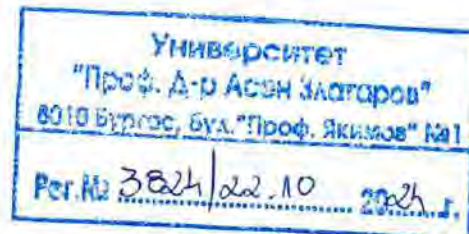 Университет
"Проф. Д-р Асен Златаров"
8010 Бургас, бул."Проф. Якимов" №1
Рег.№ 3824/22.10 2024 г.